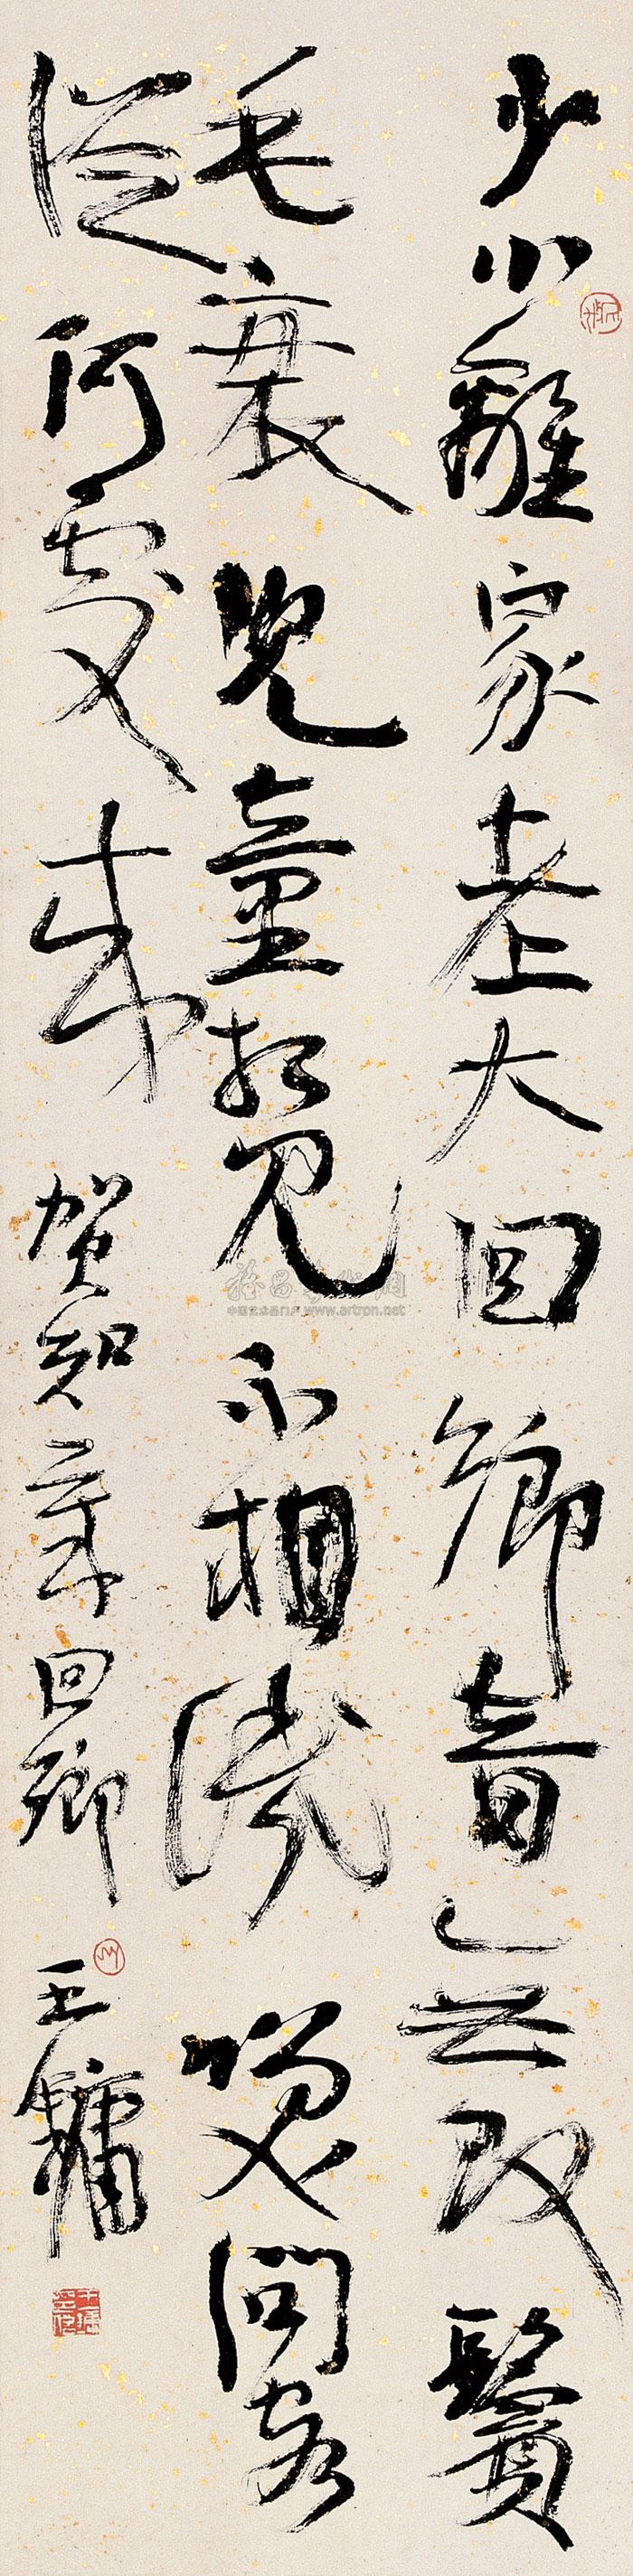 少小離家老大回鄉音無改鬢
毛衰兒童相見不相識笑問客
從何處來 賀知章回鄉 王鏞
雅昌艺术网
中国艺术品门户 www.artron.net